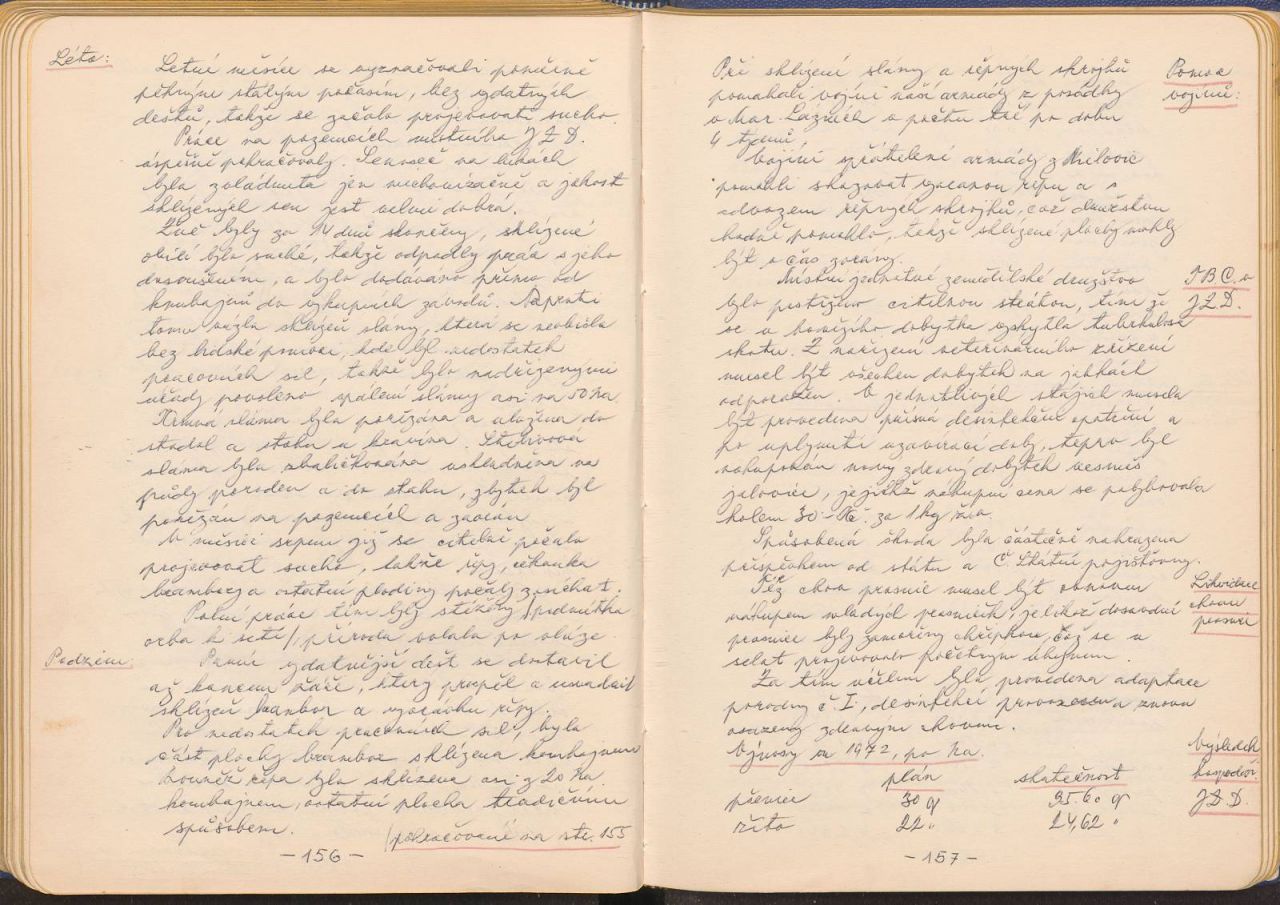 Léto:
Letní měsíce se vyznačovali poměrně
pěkným stálým počasím, bez vydatných
deštů, takže se začalo projevovati sucho.
Práce na pozemcích místního JZD.
úspěšně pokračovaly. Senoseč na lukách
byla zvládnuta jen mechanizačně a jakost
sklizených sen jest velmi dobrá.
Žně byly za 14 dnů skončeny, sklizené
obilí bylo suché, takže odpadly práce s jeho
dosoušením, a bylo dodáváno přímo od
kombajnů do výkupních závodů. Naproti
tomu vázla sklizeň slámy, která se neobešla
bez lidské pomoci, kde byl nedostatek
pracovních sil, takže bylo nadřízenými
úřady povoleno spálení slámy asi na 50 ha.
Krmná sláma byla pořezána a uložena do
stodol a stohu u kravína. Stelivová
sláma byla zbalíčkována uskladněna na
půdy poroden a do stohu, zbytek byl
pořezán na pozemcích a zaorán
V měsíci srpnu již se citelně počalo
projevovat sucho, takže řepy, cibulka
brambory a ostatní plodiny počaly zasíchat.
Polní práce tím byly stíženy /podmítka
orba k setí/, příroda volala po vláze.
Podzim:
První vydatnější déšt se dostavil
až koncem září, který prospěl a usnadnil
sklizeň brambor a vyorávku řepy.
Pro nedostatek pracovních sil, byla
část plochy brambor sklizena kombajnem
rovněž řepa byla sklizena asi z 20 ha
kombajnem, ostatní plocha tradičním
způsobem.
/pokračování na str. 155
- 156 -
Při sklízení slámy a řepných skrojků
pomahali vojíni naší armády z posádky
v Mar. Lázních v počtu tří po dobu
4 týdnů.
Pomoc
vojínů:
Vojíni spřátelení armády z Milovic
pomohli skazovat vyoranou řepu a s
odvozem řepných skrojků, což družstvu
hodně pomohlo, takže sklizené plochy mohly
být v čas zorány.
Místní jednotné zemědělské družstvo
bylo postiženo citelnou ztrátou, tím že
se u hovězího dobytka vyskytla tuberkulosa
skotu. Z nařízení veterinárního zřízení
musel být všechen dobytek na jatkách
odporažen. V jednotlivých stájích musela
být provedena přísná desinfekční opatření a
po uplynutí uzavírací doby, teprv byl
nakupován nový zdravý dobytek vesměs
jalovice, jejichž nákupní cena se pohybovala
kolem 30- Kč. za 1 kg živ.
TBC. v
JZD.
Způsobená škoda byla částečně nahrazena
příspěvkem od státu a Č. Státní pojišťovny.
Též chov prasnic musel být obnoven
nákupem mladých prasniček, jelikož dosavadní
prasnice byly zamořeny chřipkou, což se u
selat projevovalo početným úhynem.
Likvidace
chovu
prasnic
Za tím účelem byla provedena adaptace
porodny č. I, desinfekcí provozem a znovu
osazeny zdravým chovem.
Výnosy za 1972, po ha.
plán skutečnost
pšenice 30 q 35.60 q
žito 22 " 24,62 "
Výsledek
hospodář.
JZD.
- 157 -